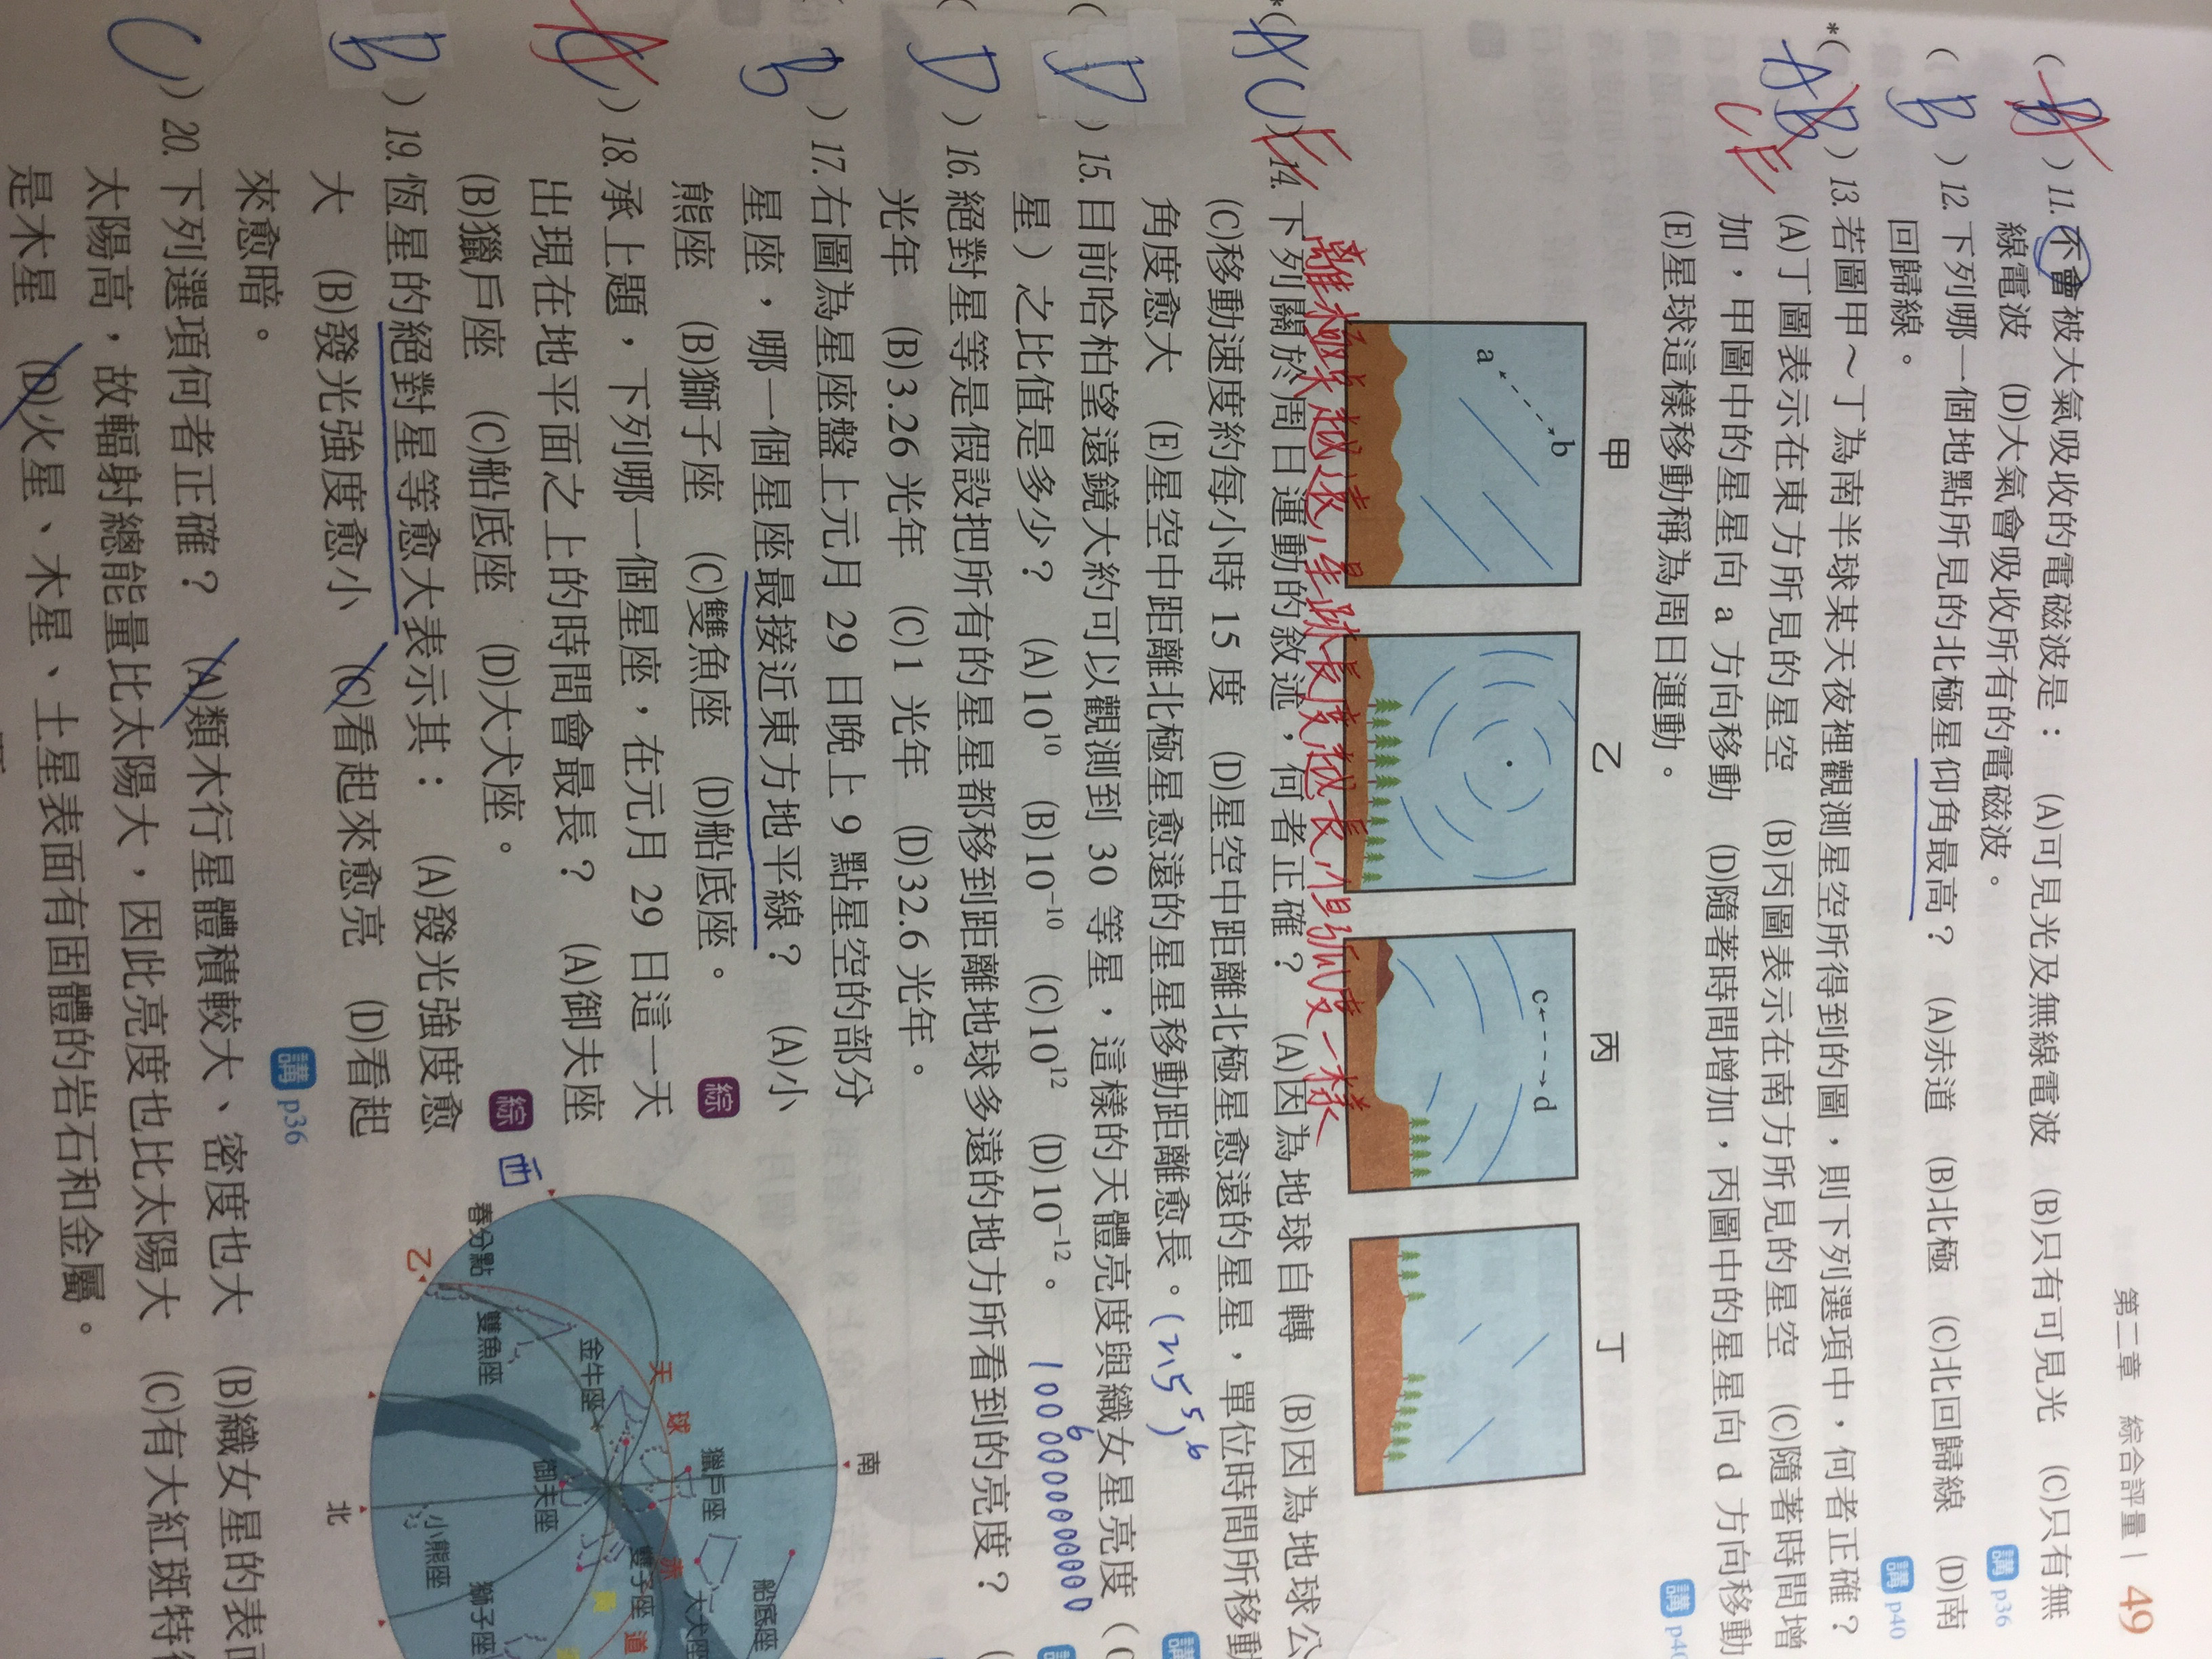 第二章 綜合評量 | 49
( A ) 11. 不會被大氣吸收的電磁波是： (A)可見光及無線電波 (B)只有可見光 (C)只有無
線電波 (D)大氣會吸收所有的電磁波。 講 p36
( B ) 12. 下列哪一個地點所見的北極星仰角最高？ (A)赤道 (B)北極 (C)北回歸線 (D)南
回歸線。 講 p40
*( AB CE ) 13. 若圖甲～丁為南半球某天夜裡觀測星空所得到的圖，則下列選項中，何者正確？
(A)丁圖表示在東方所見的星空 (B)丙圖表示在南方所見的星空 (C)隨著時間增
加，甲圖中的星星向 a 方向移動 (D)隨著時間增加，丙圖中的星星向 d 方向移動
(E)星球這樣移動稱為周日運動。 講 p40
甲 乙 丙 丁
a b
c d
離極軸越遠，星跡長度越長，但弧度一樣
*( AC E ) 14. 下列關於周日運動的敘述，何者正確？ (A)因為地球自轉 (B)因為地球公
(C)移動速度約每小時 15 度 (D)星空中距離北極星愈遠的星星，單位時間所移動
角度愈大 (E)星空中距離北極星愈遠的星星移動距離愈長。 講
(2.5⁵)⁶
( D ) 15. 目前哈柏望遠鏡大約可以觀測到 30 等星，這樣的天體亮度與織女星亮度（0
星）之比值是多少？ (A)10¹⁰ (B)10⁻¹⁰ (C)10¹² (D)10⁻¹²。
( D ) 16. 絕對星等是假設把所有的星星都移到距離地球多遠的地方所看到的亮度？
光年 (B)3.26 光年 (C)1 光年 (D)32.6 光年。
( B ) 17. 右圖為星座盤上元月 29 日晚上 9 點星空的部分
星座，哪一個星座最接近東方地平線？ (A)小
熊座 (B)獅子座 (C)雙魚座 (D)船底座。 綜
( A ) 18. 承上題，下列哪一個星座，在元月 29 日這一天
出現在地平面之上的時間會最長？ (A)御夫座
(B)獵戶座 (C)船底座 (D)大犬座。 綜
( B ) 19. 恆星的絕對星等愈大表示其： (A)發光強度愈
大 (B)發光強度愈小 (C)看起來愈亮 (D)看起
來愈暗。 講 p36
西
南
北
春分點
乙
雙魚座
金牛座
天
球
赤
道
獵戶座
御夫座
小熊座
雙子座
大犬座
船底座
獅子座
( C ) 20. 下列選項何者正確？ (A)類木行星體積較大、密度也大 (B)織女星的表面
太陽高，故輻射總能量比太陽大，因此亮度也比太陽大 (C)有大紅斑特徵
是木星 (D)火星、木星、土星表面有固體的岩石和金屬。